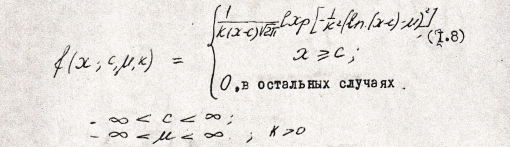 f(x; c, μ, κ) = { 1/(κ(x-c)√2π) exp[-1/κ² (ln(x-c)-μ)²]
x ≥ c; (I.8)
0, в остальных случаях.
- ∞ < c < ∞;
- ∞ < μ < ∞. ; κ > 0